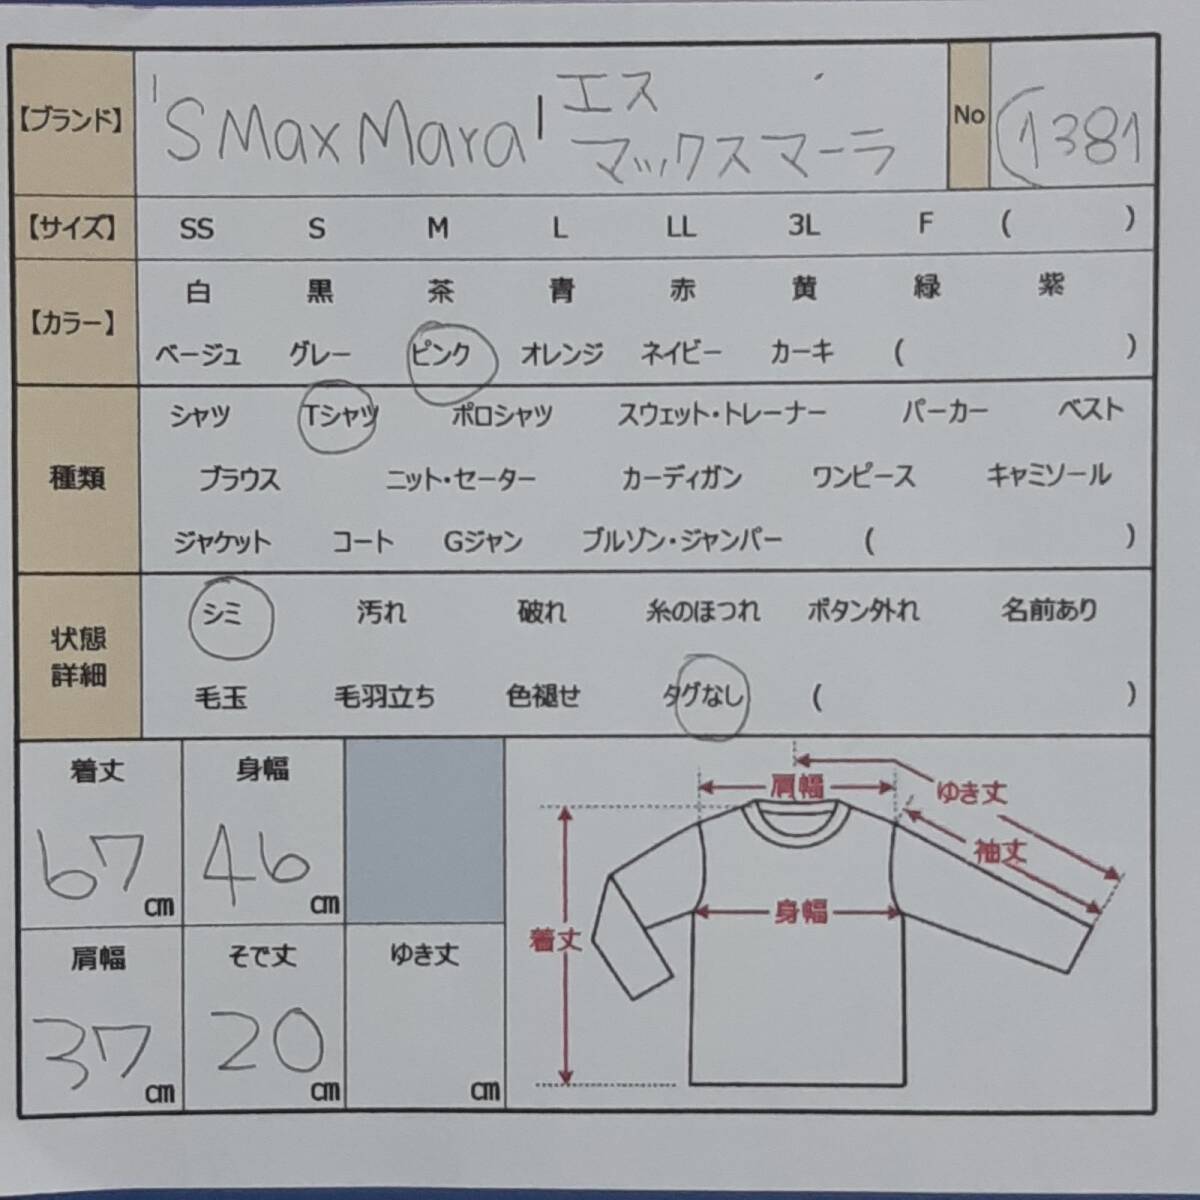 【ブランド】 'S Max Mara' エス マックスマーラ No (1381
【サイズ】 SS S M L LL 3L F ( )
【カラー】 白 黒 茶 青 赤 黄 緑 紫
ベージュ グレー ピンク オレンジ ネイビー カーキ ( )
種類 シャツ Tシャツ ポロシャツ スウェット・トレーナー パーカー ベスト
ブラウス ニット・セーター カーディガン ワンピース キャミソール
ジャケット コート Gジャン ブルゾン・ジャンパー ( )
状態
詳細
シミ 汚れ 破れ 糸のほつれ ボタン外れ 名前あり
毛玉 毛羽立ち 色褪せ タグなし ( )
着丈 身幅
67 cm 46 cm
肩幅 そで丈 ゆき丈
37 cm 20 cm cm
肩幅 ゆき丈
袖丈
身幅
着丈